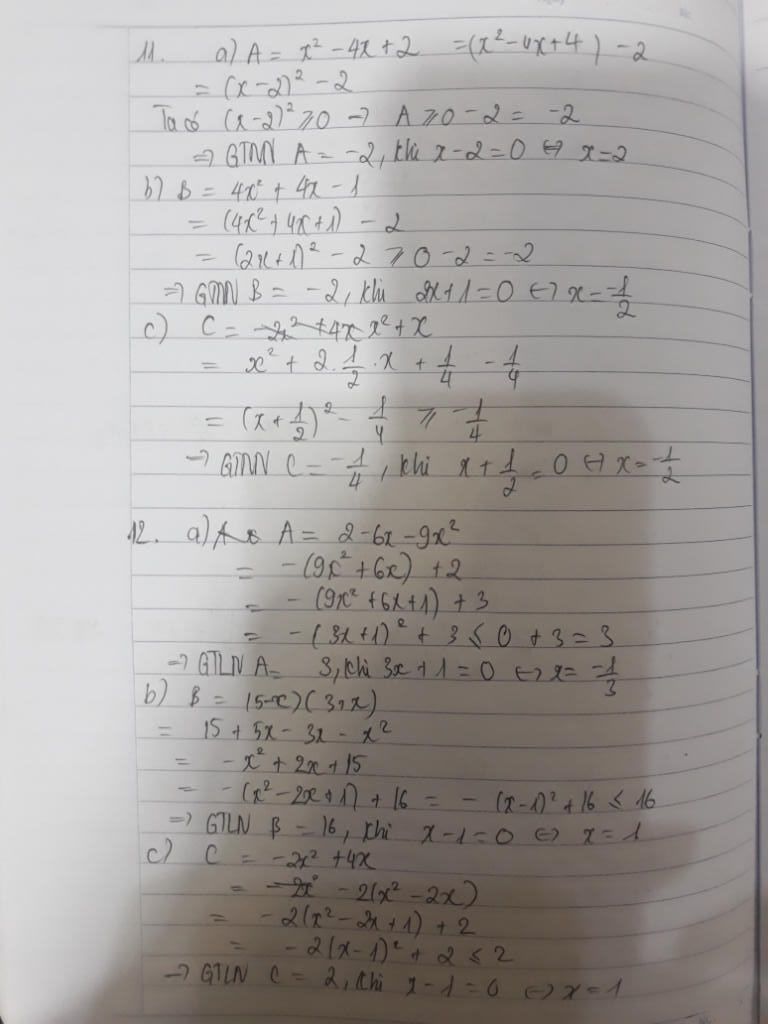 11. a) A = x² - 4x + 2 = (x² - 4x + 4) - 2
= (x-2)² - 2
Ta có (x-2)² ⩾ 0 → A ⩾ 0 - 2 = -2
⇒ GTNN A = -2, khi x - 2 = 0 ⇔ x = 2
b) B = 4x² + 4x - 1
= (4x² + 4x + 1) - 2
= (2x+1)² - 2 ⩾ 0 - 2 = -2
⇒ GTNN B = -2, khi 2x + 1 = 0 ⇔ x = -1/2
c) C = x² + x
= x² + 2.1/2.x + 1/4 - 1/4
= (x + 1/2)² - 1/4 ⩾ -1/4
→ GTNN C = -1/4, khi x + 1/2 = 0 ⇔ x = -1/2
12. a) A = 2 - 6x - 9x²
= -(9x² + 6x) + 2
= -(9x² + 6x + 1) + 3
= -(3x+1)² + 3 ⩽ 0 + 3 = 3
⇒ GTLN A = 3, khi 3x + 1 = 0 ⇔ x = -1/3
b) B = (5-x)(3+x)
= 15 + 5x - 3x - x²
= -x² + 2x + 15
= -(x² - 2x + 1) + 16 = -(x-1)² + 16 ⩽ 16
⇒ GTLN B = 16, khi x - 1 = 0 ⇔ x = 1
c) C = -2x² + 4x
= -2(x² - 2x)
= -2(x² - 2x + 1) + 2
= -2(x-1)² + 2 ⩽ 2
→ GTLN C = 2, khi x - 1 = 0 ⇔ x = 1